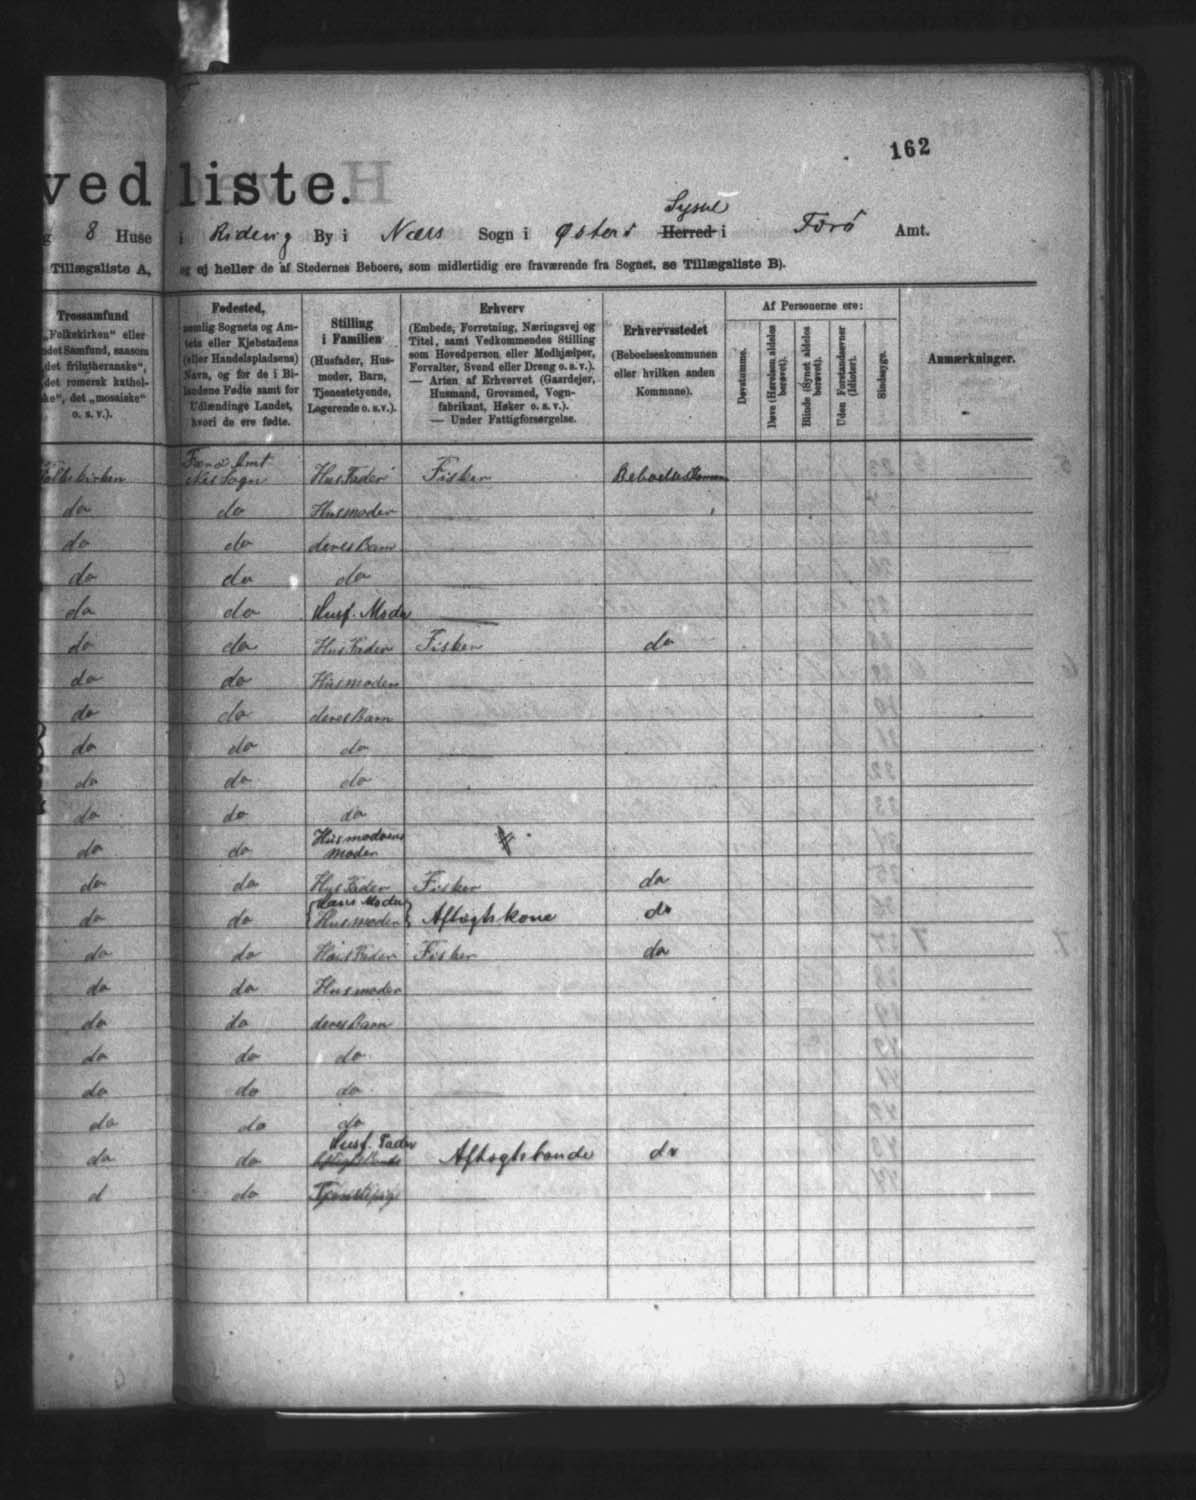 162
ved liste.
8 Huse i Rideng By i Næs Sogn i Østerø Syssel Herred i Færø Amt.
Tillægsliste A, og ej heller de af Stedernes Beboere, som midlertidig ere fraværende fra Sognet, se Tillægsliste B).
Trossamfund
„Folkekirken" eller
det Samfund, saasom
„det frilutheranske",
„det romersk kathol-
ke", det „mosaiske"
o. s. v.).
Fødested,
nemlig Sognets og Am-
tets eller Kjøbstadens
(eller Handelspladsens)
Navn, og for de i Bi-
landene Fødte samt for
Udlændinge Landet,
hvori de ere fødte.
Stilling
i Familien
(Husfader, Hus-
moder, Barn,
Tjenestetyende,
Logerende o. s. v.).
Erhverv
(Embede, Forretning, Næringsvej og
Titel, samt Vedkommendes Stilling
som Hovedperson eller Medhjælper,
Forvalter, Svend eller Dreng o. s. v.).
— Arten af Erhvervet (Gaardejer,
Husmand, Grovsmed, Vogn-
fabrikant, Høker o. s. v.).
— Under Fattigforsørgelse.
Erhvervsstedet
(Beboelseskommunen
eller hvilken anden
Kommune).
Af Personerne ere:
Døvstumme.
Døve (Hørelsen aldeles
berøvet).
Blinde (Synet aldeles
berøvet).
Uden Forstandsevner
(Idioter).
Sindssyge.
Anmærkninger.
Folkekirken Færø Amt Næs Sogn HusFader Fisker
do do Husmoder
do do deres Barn
do do do
do do Husf. Moder
do do HusFader Fisker do
do do Husmoder
do do deres Barn
do do do
do do do
do do do
do do Husmoderens Moder
do do HusFader Fisker do
do do Hans Moder Husmoder Aftægtskone do
do do HusFader Fisker do
do do Husmoder
do do deres Barn
do do do
do do do
do do do
do do Husf. Fader Aftægtsbonde do
d do Tjenestepige